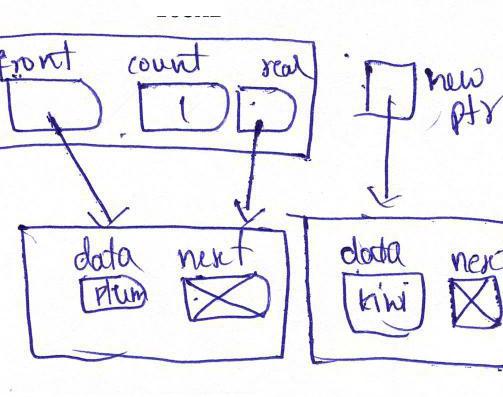 front count real
1
new
ptr
data next data nex
plum kiwi